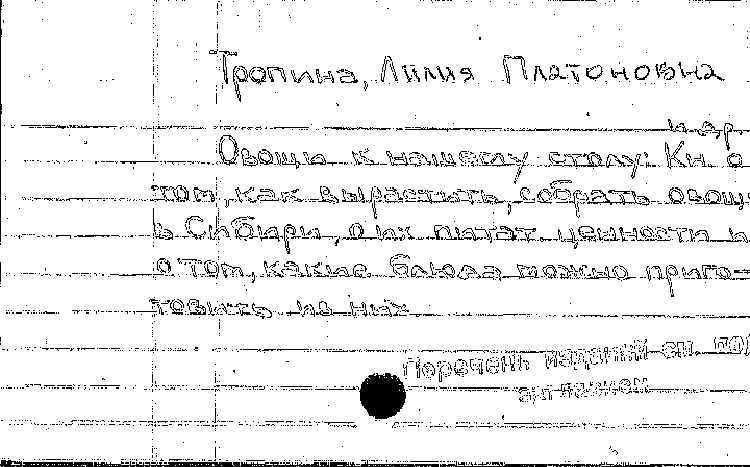 Тропина, Лилия Платоновна
и др.
Овощи к нашему столу: Кн. о
том, как вырастить, собрать овощи
в Сибири, о их питат. ценности и
о том, какие блюда можно приго-
товить из них
Перечень изданий см. под
заглавием